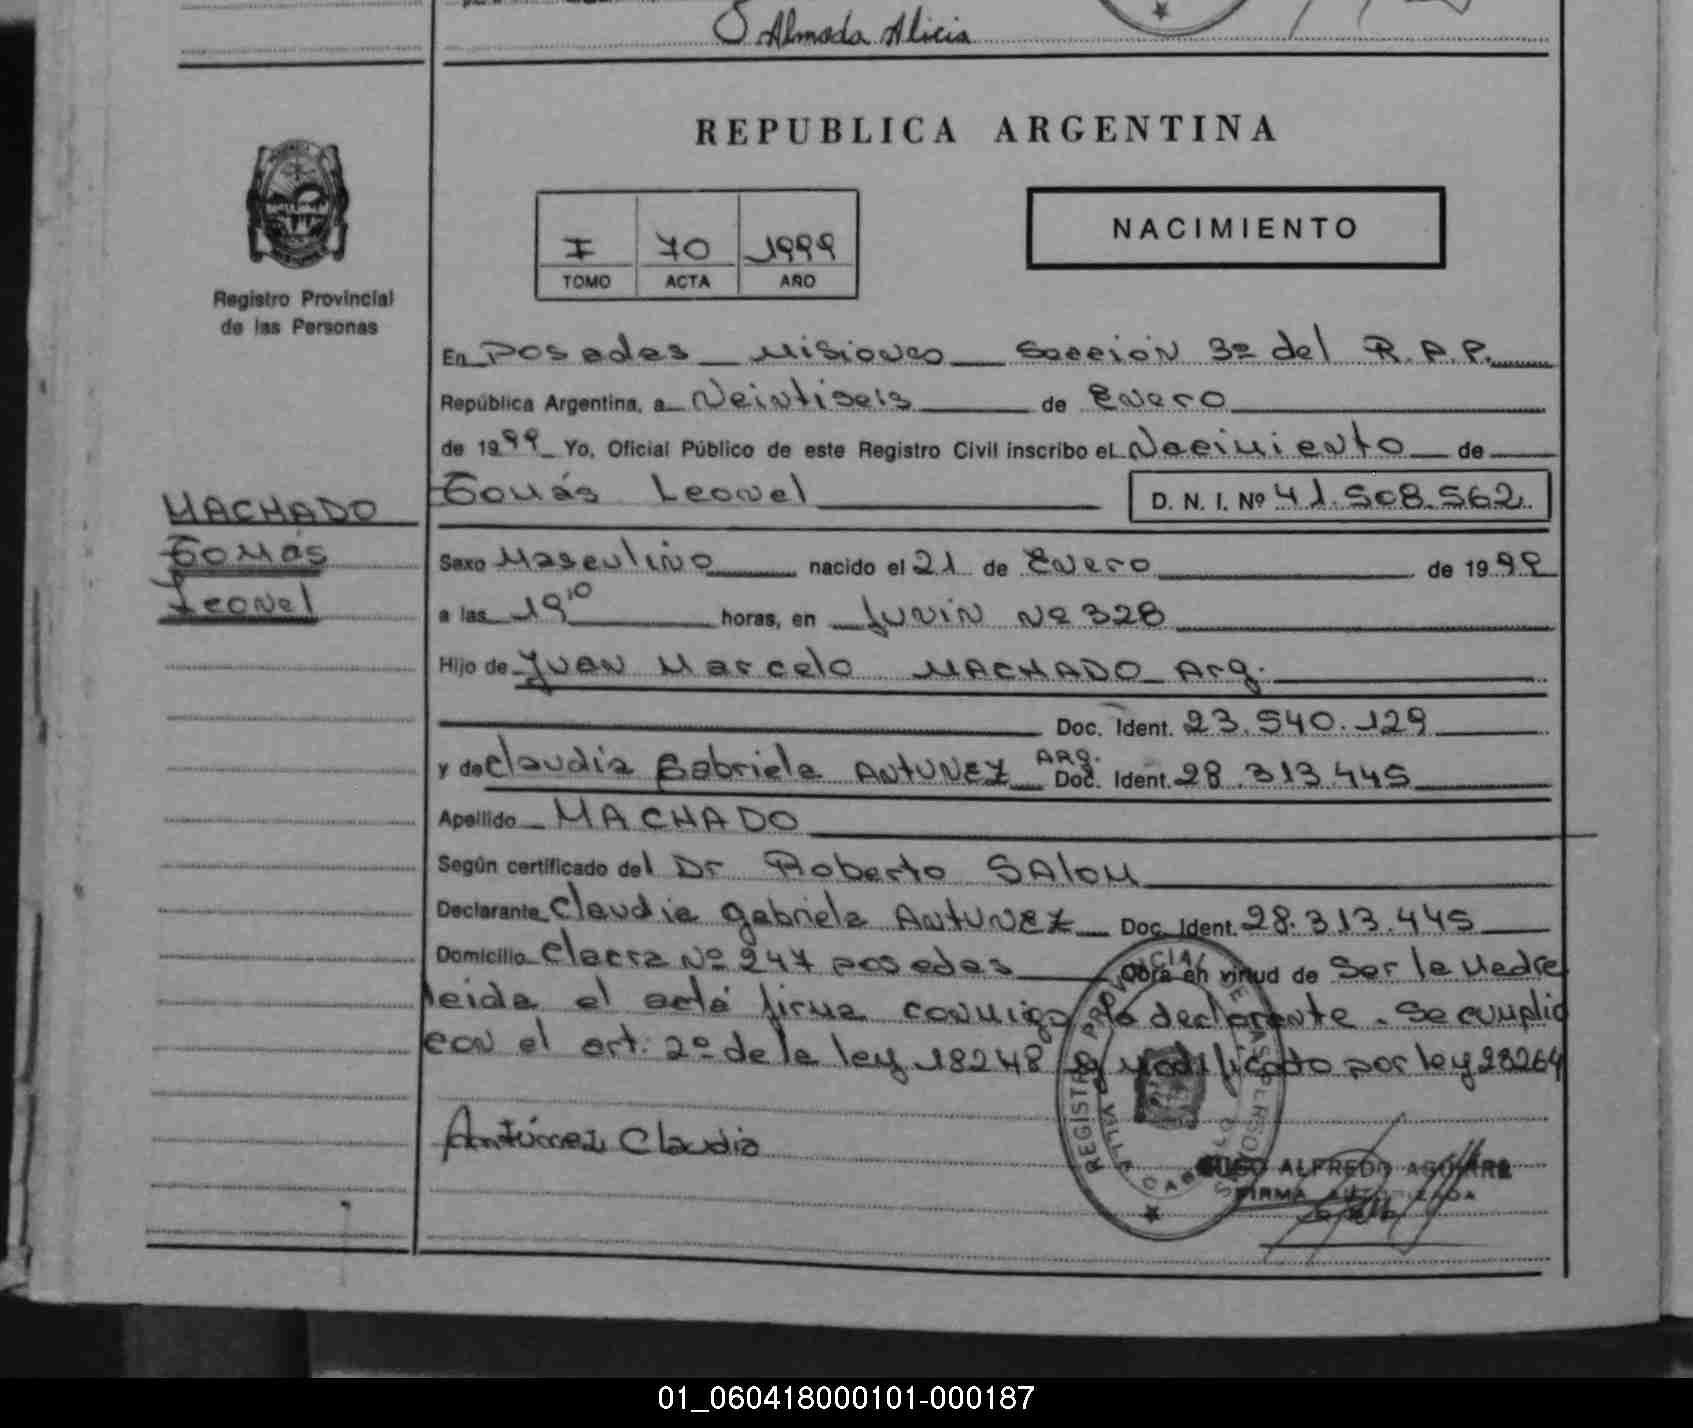 Almada Alicia
REPUBLICA ARGENTINA
I 70 1999
TOMO ACTA AÑO
NACIMIENTO
Registro Provincial
de las Personas
En Posadas Misiones Sección 3º del R.P.P.
República Argentina, a Veintiseis de Enero
de 1999 Yo, Oficial Público de este Registro Civil inscribo el Nacimiento de
Tomás Leonel D. N. I. Nº 41.508.562
MACHADO
Tomás
Leonel
Sexo Masculino nacido el 21 de Enero de 1999
a las 19¹⁰ horas, en Junin Nº 328
Hijo de Juan Marcelo MACHADO Arg.
Doc. Ident. 23.540.129
y de Claudia Gabriela ANTUNEZ ARG. Doc. Ident. 28.313.445
Apellido MACHADO
Según certificado del Dr Roberto SALOM
Declarante Claudia Gabriela ANTUNEZ Doc. Ident. 28.313.445
Domicilio Chacra Nº 247 Posadas Obra en virtud de Ser la Madre
leida el acta firma conmigo la declarante. Se cumplio
con el art. 2º de la ley 18248 modificado por ley 23264
Antúnez Claudia
REGISTRO PROVINCIAL DE LAS PERSONAS
VILLA CABELLO
HUGO ALFREDO AGUIRRE
FIRMA AUTORIZADA
01_060418000101-000187